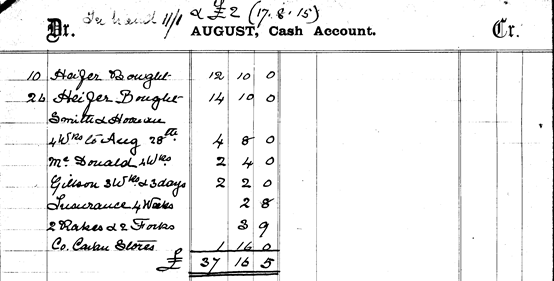 In hand 11/1 & £2 (17.8.15)
Dr. AUGUST, Cash Account. Cr.
10 Heifer Bought 12 10 0
26 Heifer Bought 14 10 0
Smith &
4 Wks to Aug 28th. 4 8 0
Mc Donald 4 Wks 2 4 0
Gilson 3 Wks & 3 days 2 2 0
Insurance 4 Weeks 2 8
2 Rakes & 2 Forks 3 9
Co. Cavan Stores 1 16 0
£ 37 16 5